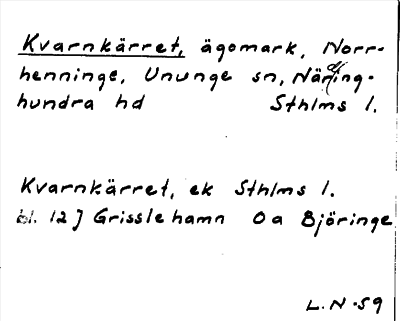 Kvarnkärret, ägomark, Norr-
henninge, Ununge sn, Närding-
hundra hd Sthlms l.
Kvarnkärret, ek Sthlms l.
bl. 12 J Grisslehamn Oa Björinge
L.N-59